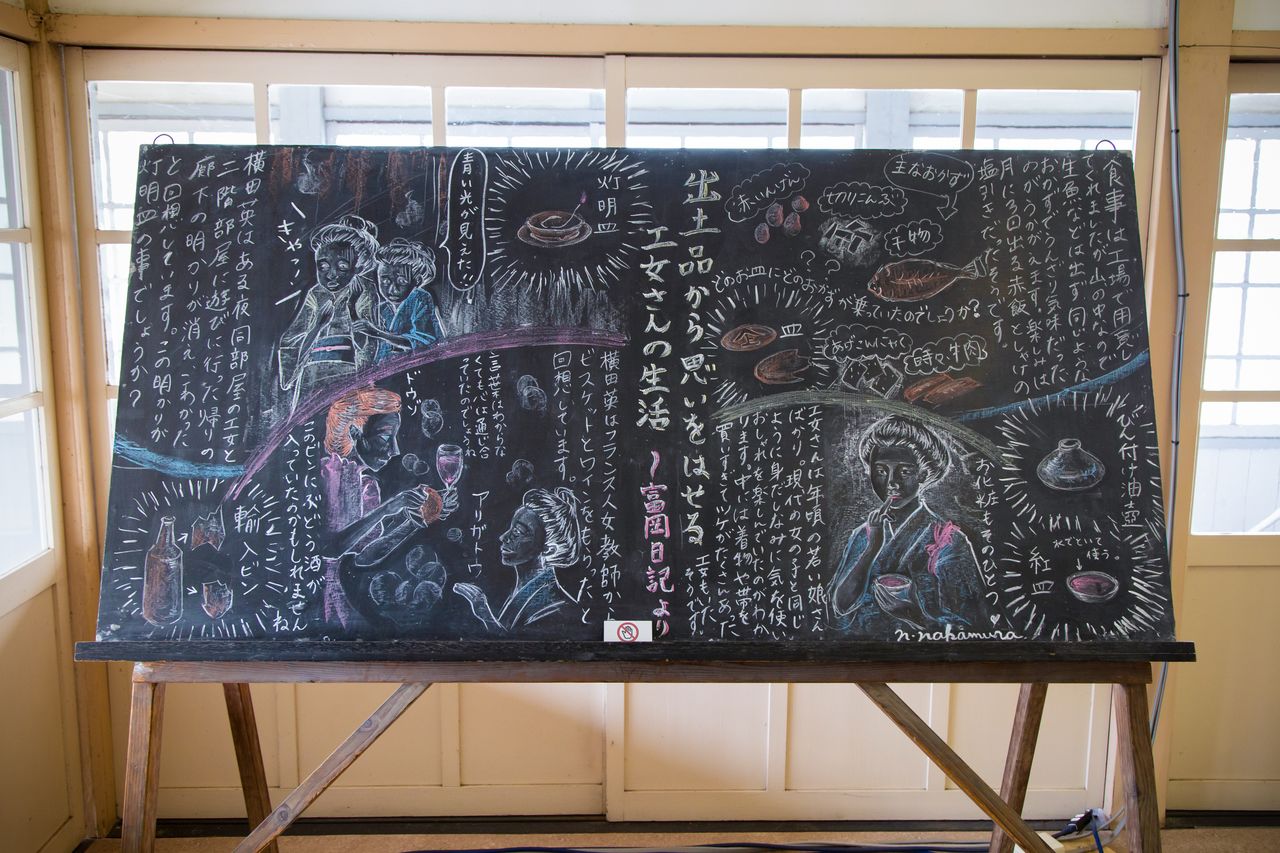 出土品から思いをはせる
工女さんの生活
〜富岡日記より
食事は工場で用意し
てくれましたが山の中なので
生魚などは出ず同じような
おかずでうんざり気味だった
のがうかがえます。楽しみは
月に3回出る赤飯としゃけの
塩引きだったそうです。
主なおかず
赤いんげん
切りこんぶ
干物
どのお皿にどのおかずが乗っていたのでしょうか?
??
皿
あげこんにゃく
時々牛肉
びん付け油壺
水でといて
使う。
紅皿
お化粧もそのひとつ
工女さんは年頃の若い娘さん
ばかり。現代の女の子と同じ
ように身だしなみに気を使い
おしゃれを楽しんでいたのがわか
ります。中には着物や帯を
買いすぎてツケがたくさんあった
工女もいた
そうです。
n.nakamura
灯明皿
青い光が見えた!
きゃー
横田英はある夜、同部屋の工女と
二階部屋に遊びに行った帰り
廊下の明かりが消え、こわかった
と回想しています。この明かりが
灯明皿の事でしょうか?
横田英はフランス人女教師から
ビスケットとワインをもらったと
回想しています。
言葉はわからな
くても心は通い合
っていたのでしょうね
ドウゾ
アリガトウ
輸入ビン
このビンにぶどう酒が
入っていたのかもしれません
ね